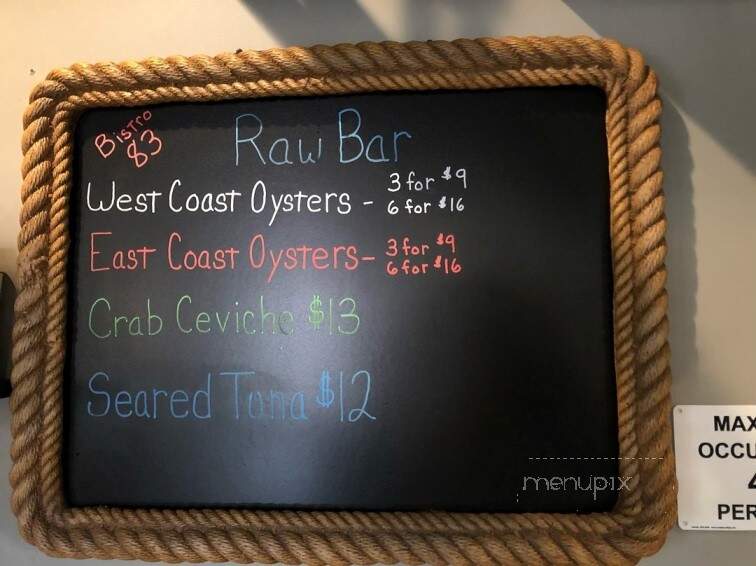 Bistro
83
Raw Bar
West Coast Oysters - 3 for $9
6 for $16
East Coast Oysters - 3 for $9
6 for $16
Crab Ceviche $13
Seared Tuna $12
menupix
MAX
OCCU
PER